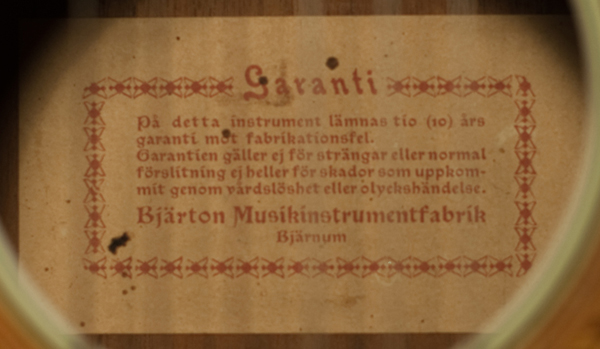 Garanti
På detta instrument lämnas tio (10) års
garanti mot fabrikationsfel.
Garantien gäller ej för strängar eller normal
förslitning ej heller för skador som uppkom-
mit genom vårdslöshet eller olyckshändelse.
Bjärton Musikinstrumentfabrik
Bjärnum